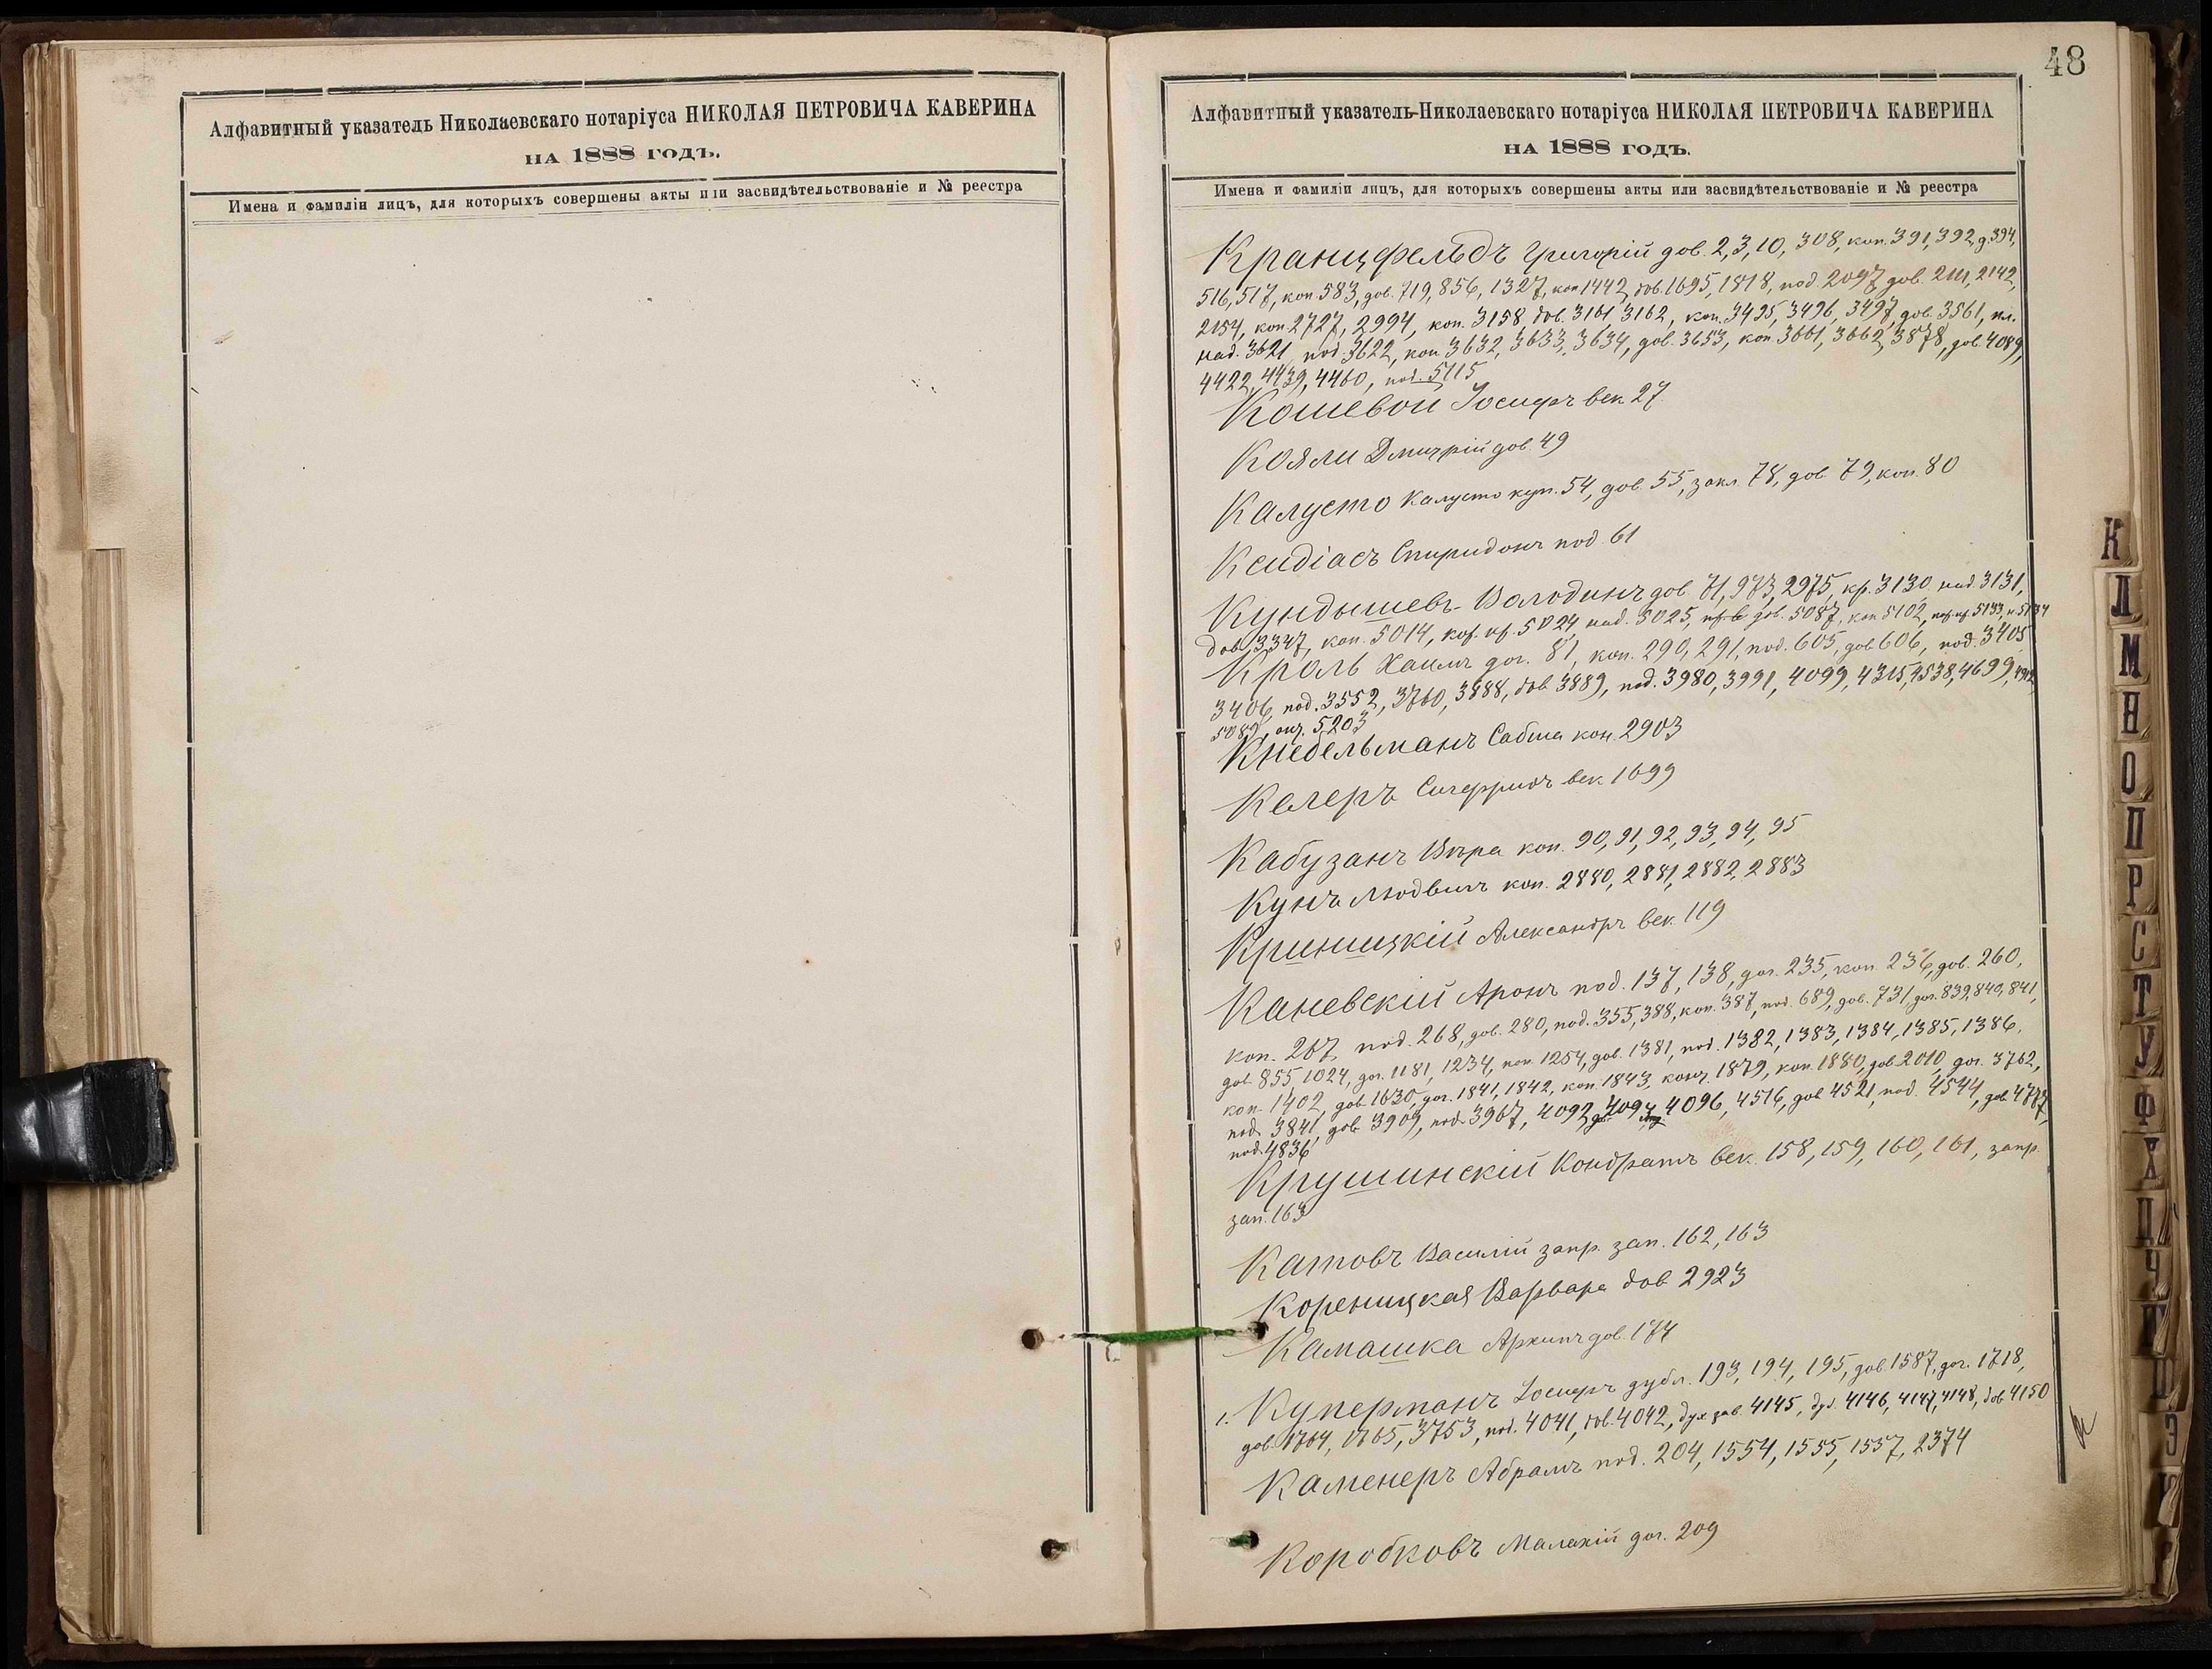 Алфавитный указатель Николаевскаго нотаріуса НИКОЛАЯ ПЕТРОВИЧА КАВЕРИНА
НА 1888 ГОДЪ.
Имена и фамиліи лицъ, для которыхъ совершены акты или засвидѣтельствованіе и № реестра
48
Алфавитный указатель Николаевскаго нотаріуса НИКОЛАЯ ПЕТРОВИЧА КАВЕРИНА
НА 1888 ГОДЪ.
Имена и фамиліи лицъ, для которыхъ совершены акты или засвидѣтельствованіе и № реестра
Кранцфельдъ Григорій дов. 2, 3, 10, 308, коп. 391, 392, д. 394,
516, 517, коп. 583, дов. 719, 856, 1327, коп 1442, дов. 1695, 1818, под. 2097, дов. 2111, 2142,
2154, коп 2727, 2994, коп. 3158, дов. 3161 3162, коп. 3495, 3496, 3497, дов. 3561,
над. 3621, под. 3622, коп 3632, 3633, 3634, дов. 3653, коп. 3661, 3662, 3878, дов. 4089,
4422, 4439, 4460, под. 5115
Кошевой Іосифъ век 27
Кояли Дмитрій дов. 49
Калусто Калусто куп. 54, дов. 55, закл. 78, дов 79, коп. 80
Ксидіасъ Спиридонъ под. 61
Кундышевъ-Володинъ дов 71, 973, 2975, кр. 3130, над 3131,
дов. 3347, коп. 5014, 5024 над. 5025, дов. 5087, коп 5102, 5133, и 5134
Кроль Хаимъ дог. 81, коп. 290, 291, под. 605, дов. 606, под. 3405
3406, под. 3552, 3760, 3888, дов 3889, под. 3980, 3991, 4099, 4315, 4538, 4699,
5089, 5203
Кнебельманъ Сабина коп. 2903
Келеръ век. 1699
Кабузанъ Вѣра коп. 90, 91, 92, 93, 94, 95
Кунъ Людвигъ коп. 2880, 2881, 2882, 2883
Криницкій Александръ век. 119
Каневскій Аронъ под. 137, 138, дог. 235, коп. 236, дов. 260,
коп. 267, под. 268, дов. 280, под. 355, 388, коп. 387, под. 689, дов. 731, дог. 839, 840, 841,
дов. 855 1024, дог. 1181, 1234, коп. 1254, дов. 1381, под. 1382, 1383, 1384, 1385, 1386,
коп. 1402, дов. 1630, дог. 1841, 1842, коп. 1843, 1879, коп. 1880, дов 2010, дог. 3762,
под. 3841, дов 3909, под. 3967, 4092, 4094, 4096, 4516, дов 4521, под. 4544, дов 4777,
под. 4836
Крушинскій Кондратъ век. 158, 159, 160, 161, запр.
зап. 163
Катовъ Василій запр. зап. 162, 163
Кореницкая Варвара дов 2923
Камашка Архипъ дов. 174
1. Куперманъ Іосифъ дубл. 193, 194, 195, дов. 1587, дог. 1718,
дов. 1764, 1765, 3753, под. 4041, дов. 4042, дух. зав. 4145, 4146, 4147, 4148, дов 4150
Каменеръ Абрамъ под. 204, 1554, 1555, 1557, 2374
Коробковъ Малахій дог. 209
К
Л
М
Н
О
П
Р
С
Т
У
Ф
Х
Ц
Ч
Э